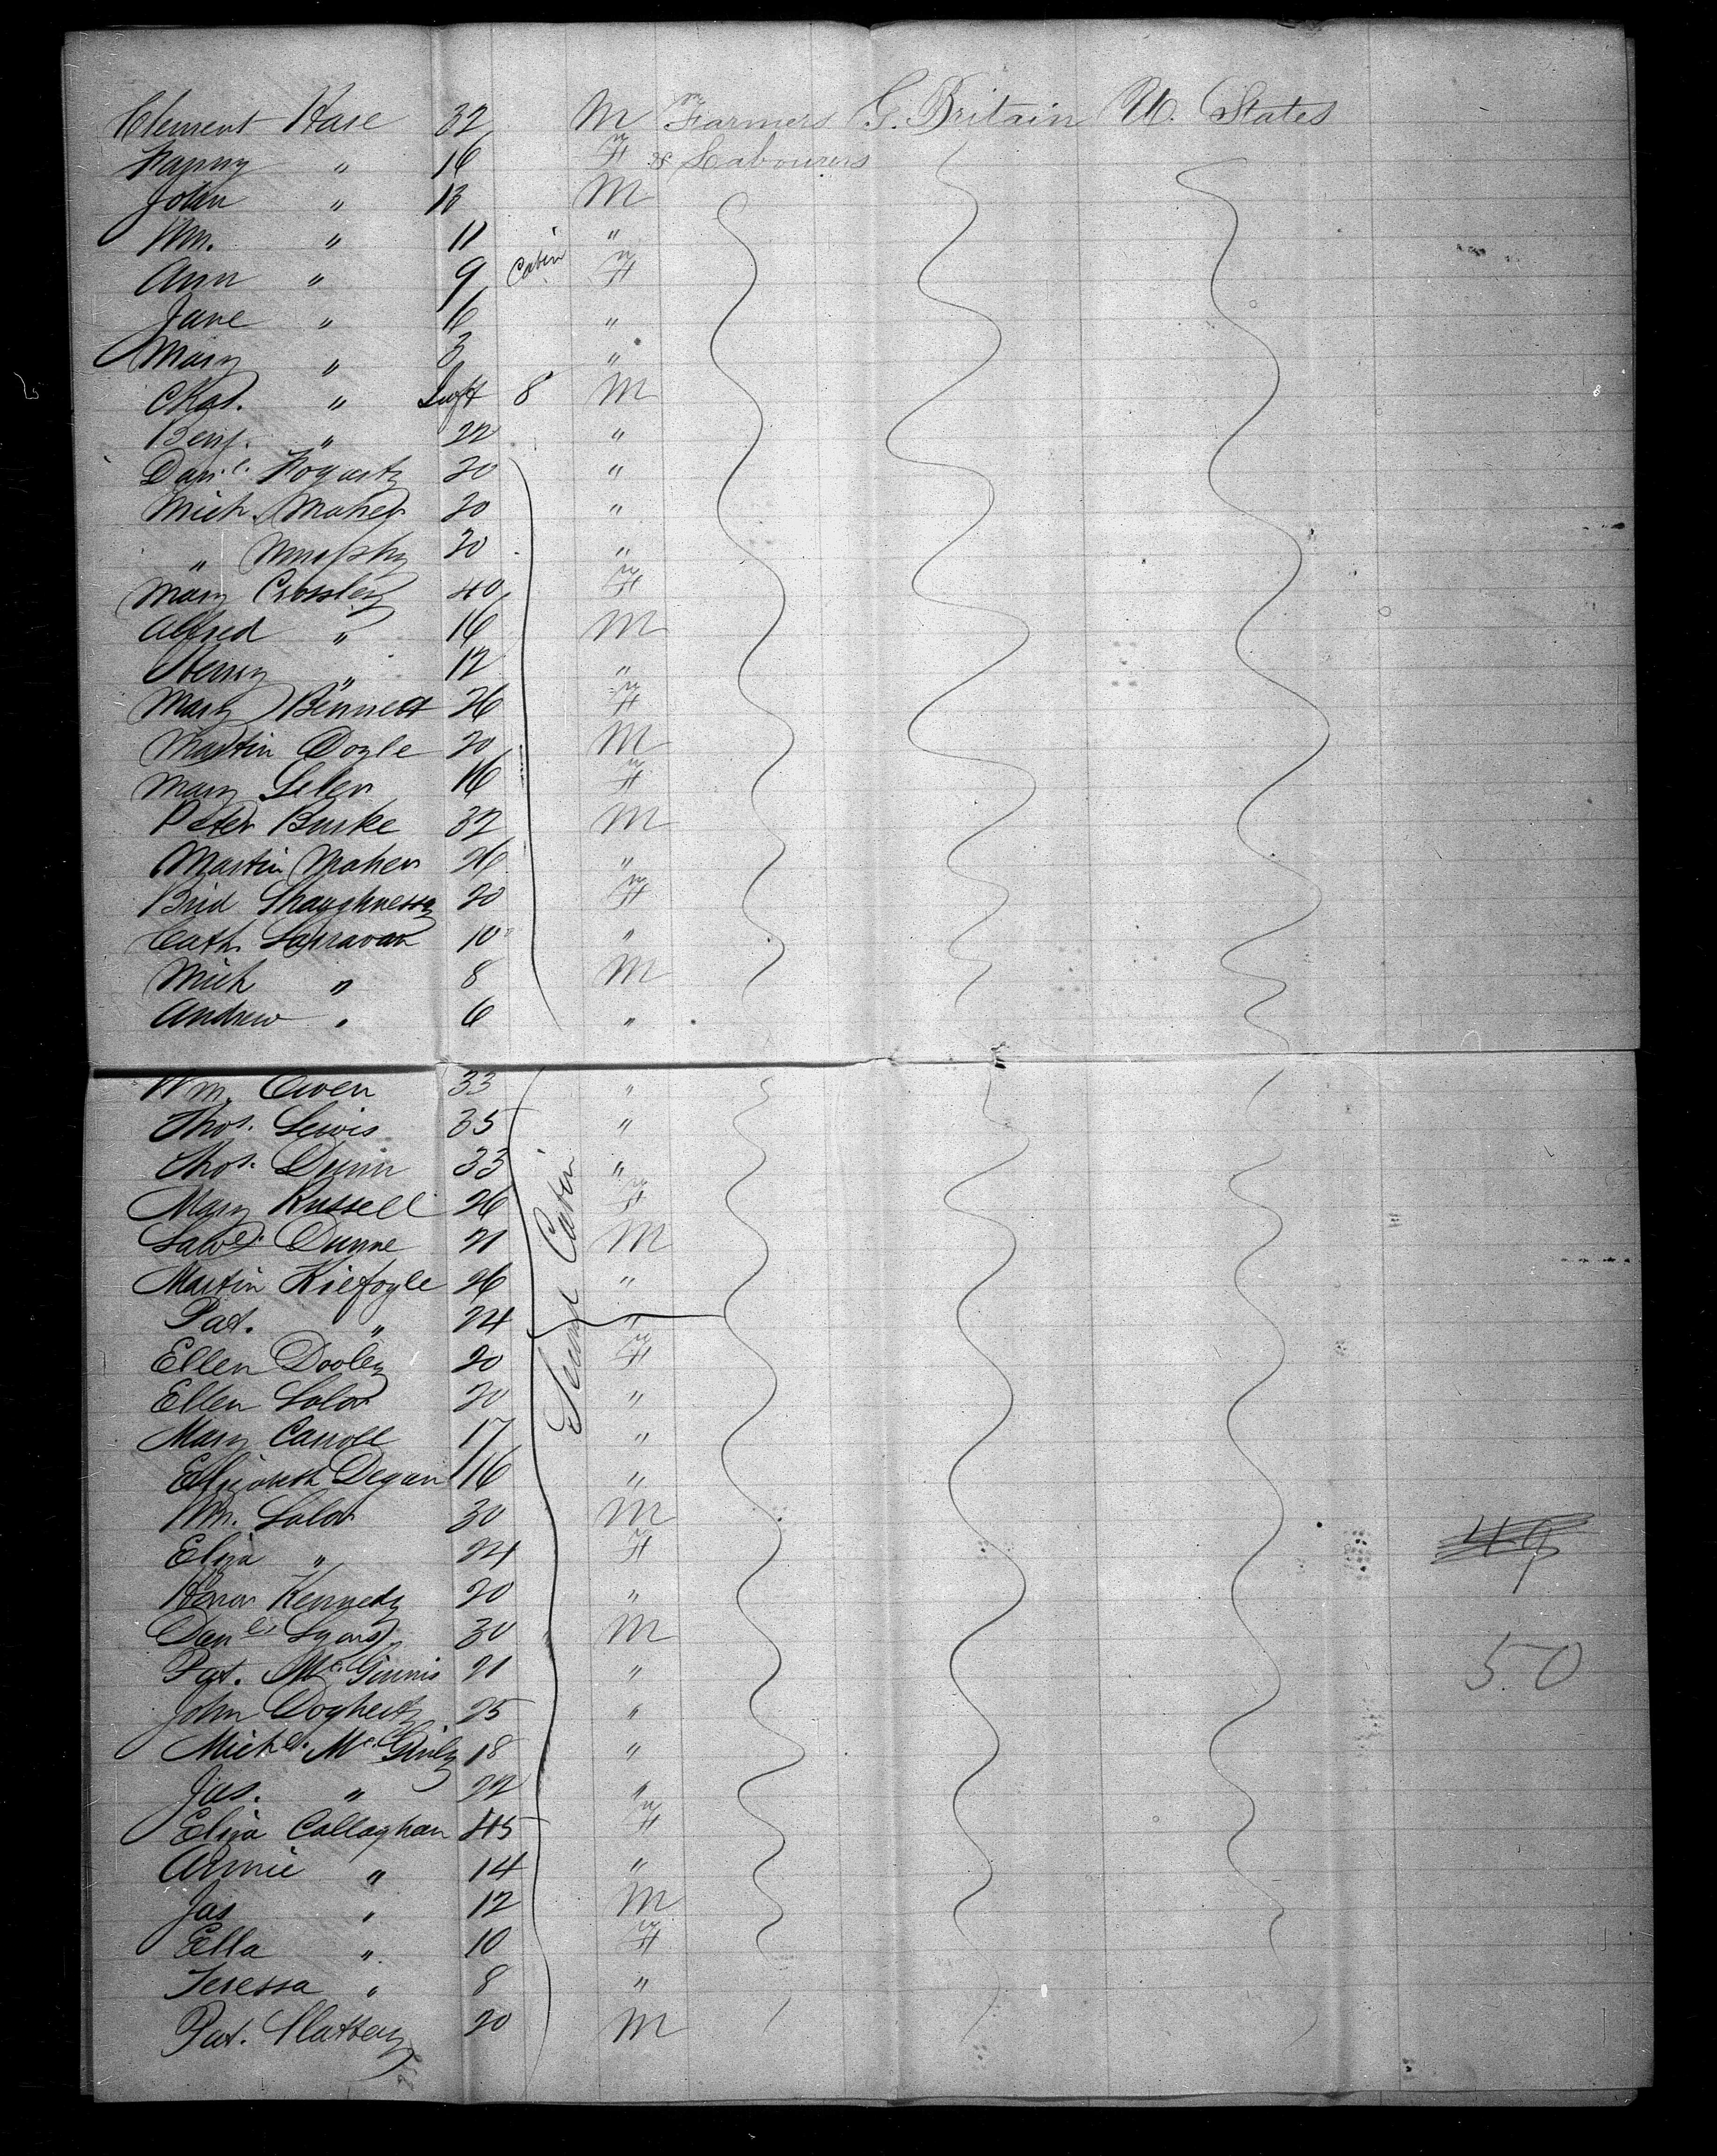 Clement Hase 32 M Farmers G. Britain U. States
Fanny " 16 F & Labourers
John " 13 M
Wm. " 11 "
Ann " 9 Cabin F
Jane " 6 "
Mary " 3 "
Chas. " Inft 8 M
Benj. " 22 "
Danl. Hogarty 20 "
Mich. Maher 20 "
" Murphy 20 "
Mary Crossley 40 F
Alfred " 16 M
Henry " 12 "
Mary Bennett 26 F
Martin Doyle 20 M
Mary 16 F
Peter Burke 32 M
Martin Maher 26 "
Brid Shaughnessy 20 F
Cath. 10 "
Mich " 8 M
Andrew " 6 "
Wm. Owen 33 "
Thos. Lewis 35 "
Thos. Dunn 33 "
Mary Russell 26 F
Lawe. Dunne 21 M
Martin Kiefoyle 26 "
Pat. " 24 "
Ellen Dooley 20 F
Ellen Lalor 20 "
Second Cabin
Mary Carroll 17 "
Elizabeth Degan 16 "
Wm. Lalor 30 M
Eliza " 24 F 49
Honor Kennedy 20 "
Danl. Lyons 30 M
Pat. McGinnis 21 " 50
John Dogherty 25 "
Michl. McGinly 18 "
Jas. " 22 "
Eliza Callaghan 45 F
Annie " 14 "
Jas " 12 M
Ella " 10 F
Teressa " 8 "
Pat. Slattery 20 M